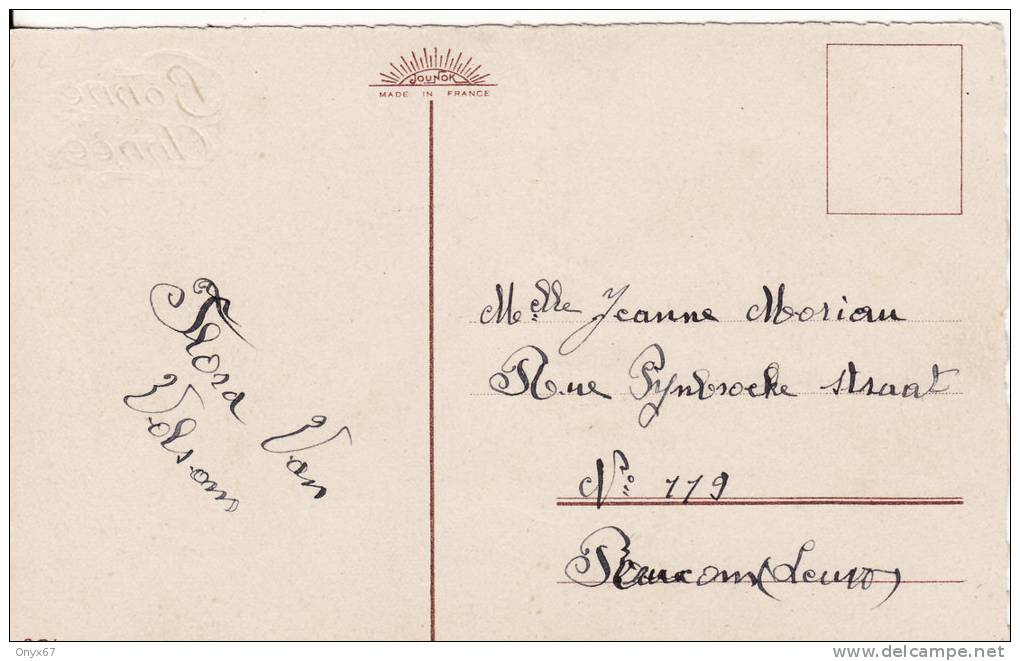 Bonne
Année
JOUNOK
MADE IN FRANCE
Flora Van
Volsom
Melle Jeanne Moriau
Rue Pynbroeke straat
No 119
(Leuze)
Onyx67
www.delcampe.net